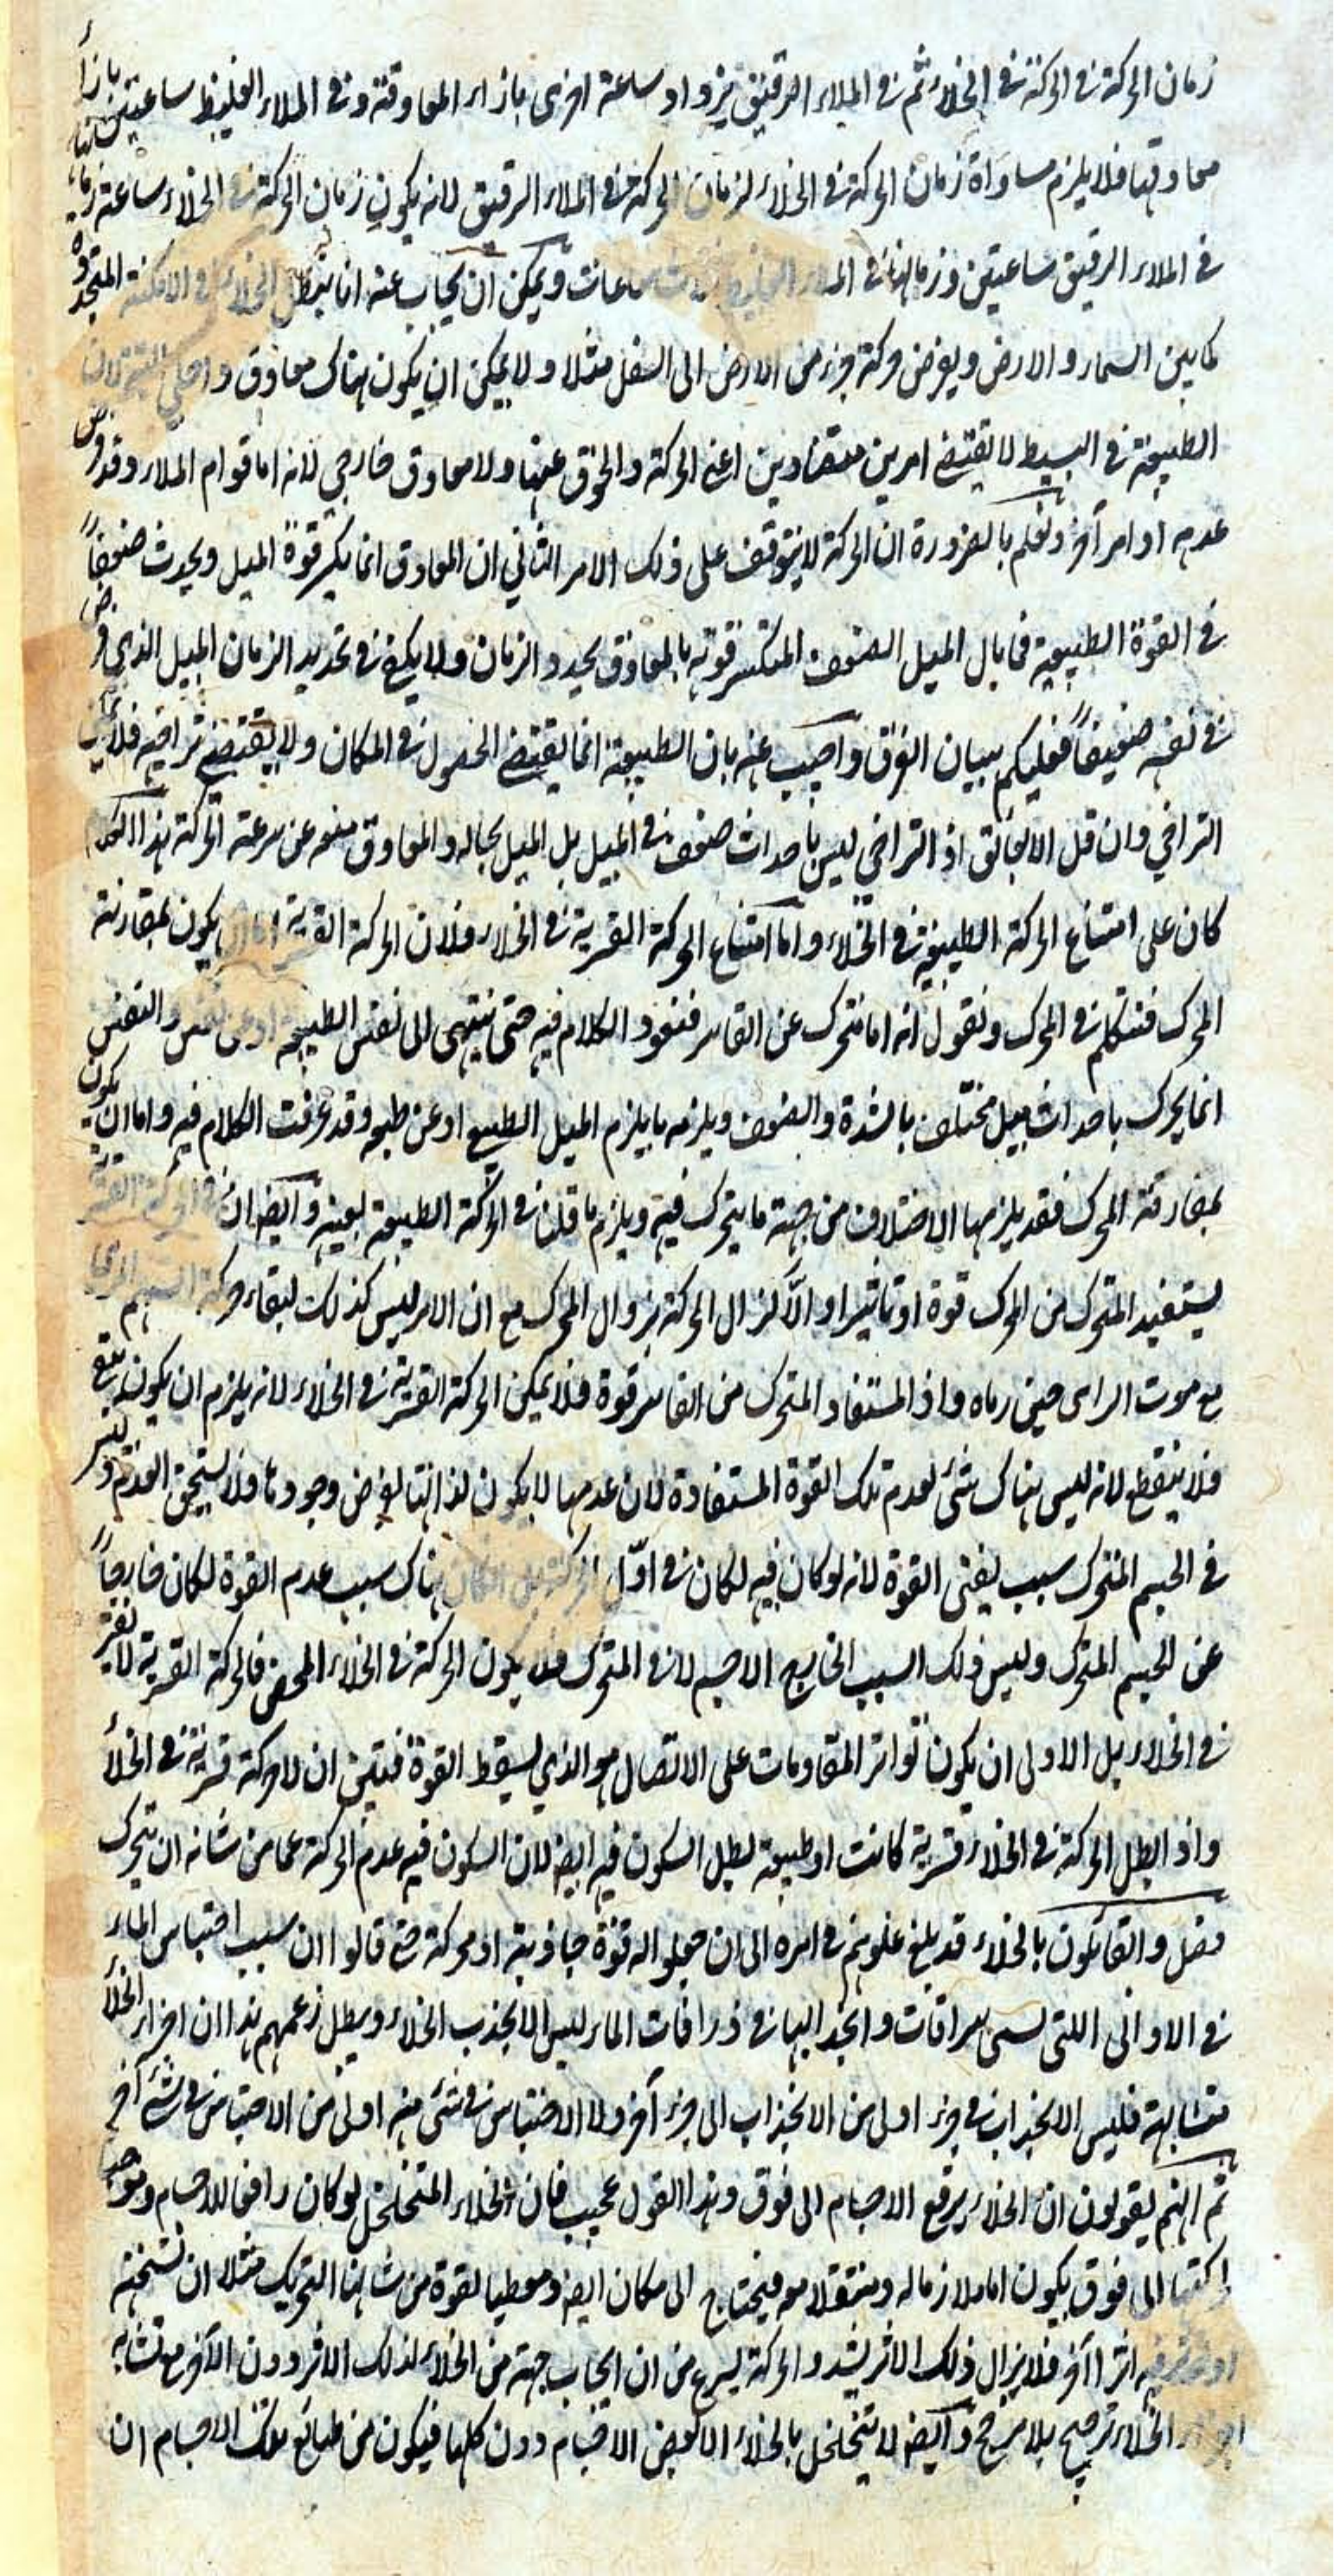 زمان الحركة في الحركة في الخلاء ثم في الملاء الرقيق يزداد ساعة اخرى بازاء المعاوقة وفي الملاء الغليظ ساعتين بازاء
معاوقتها فلا يلزم مساواة زمان الحركة في الخلاء لزمان الحركة في الملاء الرقيق لانه يكون زمان الحركة في الخلاء ساعة
في الملاء الرقيق ساعتين وزمانها في الملاء الغليظ ثلاث ساعات ويمكن ان يجاب عنه انا نبطل الخلاء في الامكنة
كما بين السماء والارض ويفرض حركة جزء من الارض الى السفل مثلا ولا يمكن ان يكون هناك معاوق داخلي
الطبيعة في البسيط لا يقتضي امرين متضادين اعني الحركة والعوق عنها ولا معاوق خارجي لانه اما قوام الملاء وقد فرض
عدمه او امر آخر ونعلم بالضرورة ان الحركة لا يتوقف على ذلك الامر الثاني ان المعاوق انما يكسر قوة الميل ويحدث ضعفاً
في القوة الطبيعية فما بال الميل الضعيف المنكسر قوته بالمعاوق يحدد الزمان ولا يكفي في تحديد الزمان الميل الذي فرض
في نفسه ضعيفاً فعليكم ببيان الفرق واجيب عنه بان الطبيعة انما يقتضي الحصول في المكان ولا يقتضي تراخيه
التراخي وان قل الا بعائق اذ التراخي ليس باحداث ضعف في الميل بل الميل بحاله والمعاوق منعه عن سرعة الحركة هذا الكلام
كان على امتناع الحركة الطبيعية في الخلاء واما امتناع الحركة القسرية في الخلاء فلان الحركة القسرية اما ان يكون بمقارنة
المحرك فنتكلم في المحرك ونقول انه اما متحرك عن القاسر فنعود الكلام فيه حتى ينتهى الى نفس الطبيعة او عن نفس والنفس
انما يحرك باحداث ميل مختلف بالشدة والضعف ويلزمه ما يلزم الميل الطبيعي او عن طبعه وقد عرفت الكلام فيه واما ان يكون
بمفارقة المحرك فقد يلزمها الاختلاف من جهة ما يتحرك فيه ويلزم ما قلنا في الحركة الطبيعة بعينه وايضا ان في الحركة القسرية
يستفيد المتحرك من المحرك قوة او تاثيرا والّا لزال الحركة بزوال المحرك مع ان الامر ليس كذلك لبقاء حركة السهم المرمى
مع موت الرامى حين رماه واذ المستفاد المتحرك من القاسر قوة فلا يمكن الحركة القسرية في الخلاء لانه يلزم ان يكون
فلا ينقطع لانه ليس هناك شئ لعدم تلك القوة المستفادة فان عدمها لا يكون لذاتها لفرض وجودها فلا يستحق العدم وليس
في الجسم المتحرك سبب يفنى القوة لانه لو كان فيه لكان في اوّل الحركة بل ان كان هناك سبب عدم القوة لكان خارجاً
عن الجسم المتحرك وليس ذلك السبب الخارج الا جسم لاق المتحرك فلا يكون الحركة في الخلاء المحض فالحركة القسرية لا يفتر
في الخلاء بل الاولى ان يكون تواتر المقاومات على الاتصال هو الذي يسقط القوة فتبين ان لا حركة قسرية في الخلاء
واذ ابطل الحركة في الخلاء قسرية كانت او طبيعة بطل السكون فيه ايضا لان السكون فيه عدم الحركة عما من شانه ان يتحرك
فصل والقائلون بالخلاء قد بلغ غلوهم في امره الى ان جعلوا له قوة جاذبة او محركة حتى قالوا ان سبب احتباس الماء
في الاوانى اللتى تسمى سراقات وانجذابها في زراقات الماء ليس الا لجذب الخلاء ويبطل زعمهم هذا ان اجزاء الخلاء
متشابهة فليس الانجذاب في جزء اولى من الانجذاب الى جزء آخر ولا الاحتباس في شئ منه اولى من الاحتباس في شئ آخر
ثم انهم يقولون ان الخلاء يرفع الاجسام الى فوق وهذا القول عجيب فان الخلاء المتخلخل لو كان رافعا للاجسام وموجب
حركتها الى فوق يكون اما ملازما له ومنتقلا معه فيحتاج الى مكان ايضا ومعطيا لقوة من شانها التحريك مثلا ان تسخنه
او يؤثر فيه اثرا آخر فلا يزال ذلك الاثر يشتد والحركة يسرع من ان ايجاب جهة من الخلاء لذلك الاثر دون الآخر مع تشابه
اجزاء الخلاء ترجيح بلا مرجح وايضا لا يتخلخل بالخلاء الا بعض الاجسام دون كلها فيكون من طبائع تلك الاجسام ان